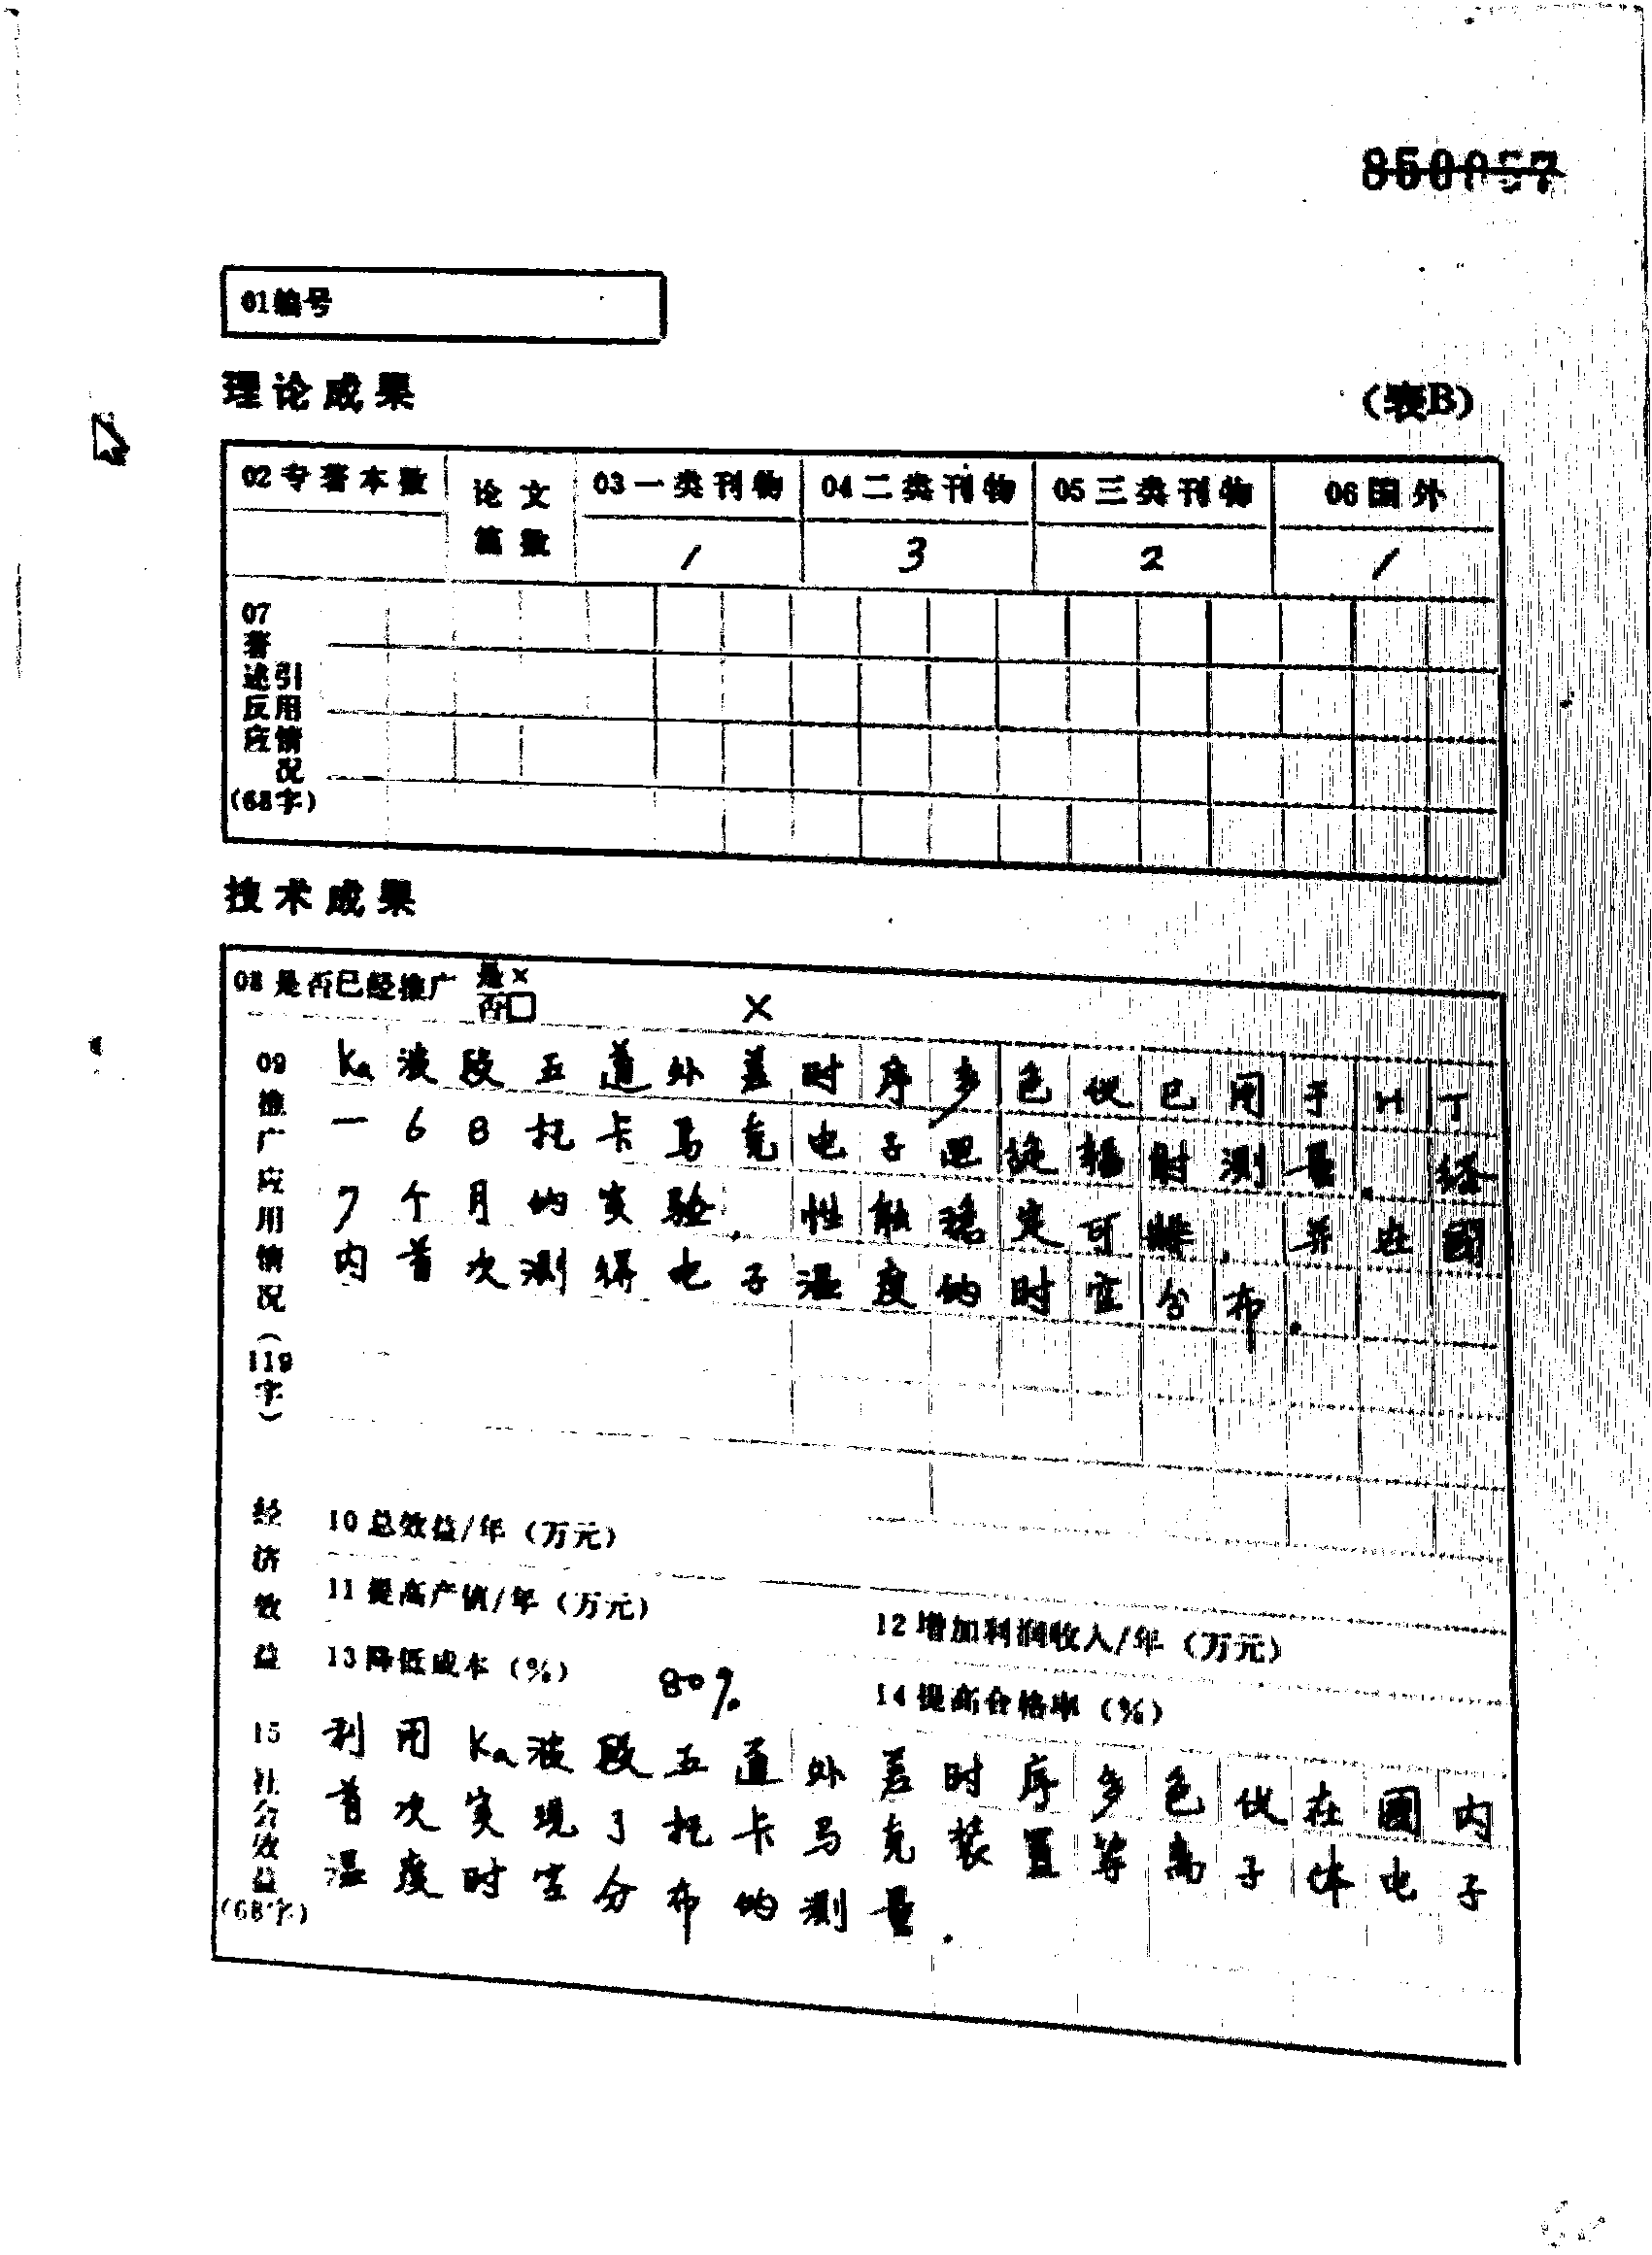 850057
01编号
理论成果
(表B)
02专著本数
论文篇数
03一类刊物
04二类刊物
05三类刊物
06国外
1
3
2
1
07著述反应引用情况(68字)
技术成果
08是否已经推广 是×
否□
×
09推广应用情况(119字)
Ka波段五道外差时序多色仪已用于HT
一6B托卡马克电子回旋辐射测量.经
7个月的实验.性能稳定可靠.并在國
内首次测得电子温度的时空分布.
经济效益
10总效益/年(万元)
11提高产值/年(万元)
12增加利润收入/年(万元)
13降低成本(%) 80%
14提高合格率(%)
15社会效益(68字)
利用Ka波段五道外差时序多色仪在國内
首次实现了托卡马克装置等离子体电子
温度时空分布的测量.